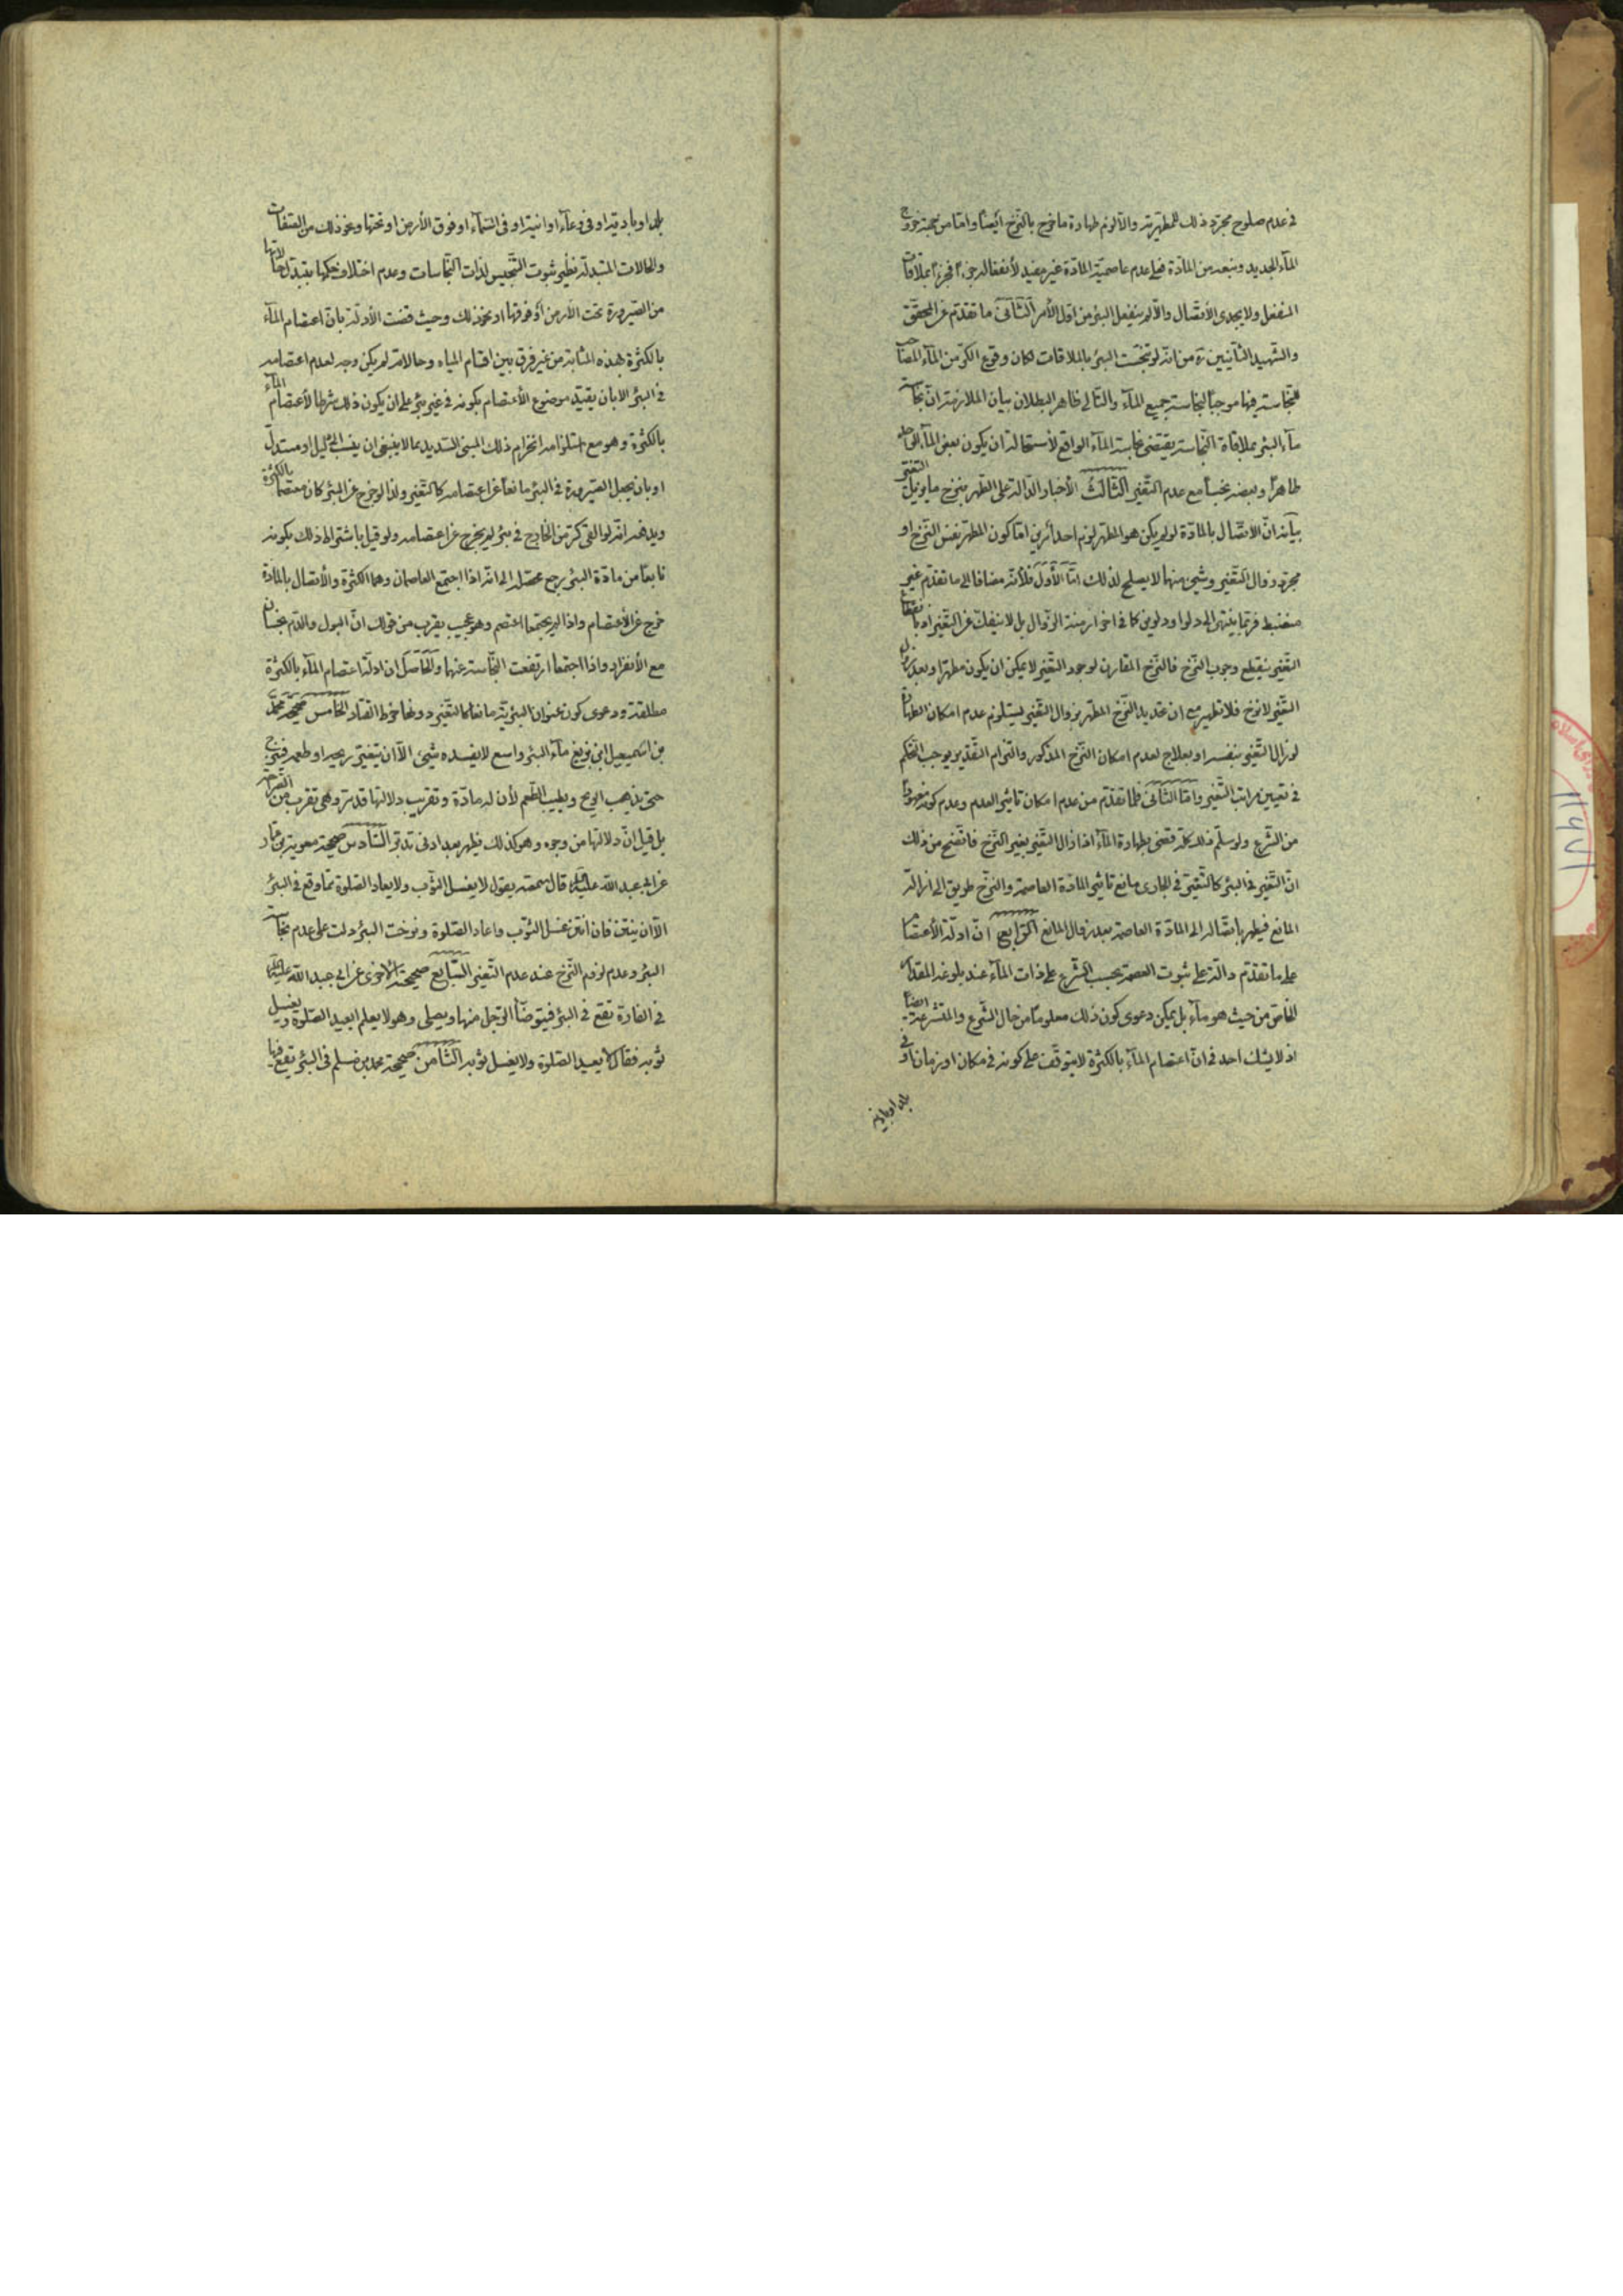 في عدم صلوح مجرّد ذلك للمطهّرية والّا لزم طهارة ما خرج بالنّزح ايضًا وامّا من جهة خروج
الماء الجديد ونبعه من المادّة فعلى عدم عاصميّة المادّة غير مفيد لأنفعاله جزءًا فجزءًا بملاقات
المنفعل ولا يجدى الأتّصال والّا لم ينفعل البئر من اوّل الأمر الثّانى ما تقدّم عن المحقّق
والشّهيد الثّانيين ره من انّه لو تنجّست البئر بالملاقات لكان وقوع الكرّ من الماء المصاحب
للنجاسة فيها موجبًا لنجاسة جميع الماء والتّالى ظاهر البطلان بيان الملازمة انّ نجاسة
ماء البئر بملاقاة النّجاسة يقتضى نجاسة الماء الواقع لأستحالة ان يكون بعض الماء الواحد
طاهرًا وبعضه نجسًا مع عدم التّغيّر الثّالث الأخبار الدّالة على الطّهر بنزح ما يزيل التّغيّر
بيانه انّ الأتّصال بالمادّة لو لم يكن هو المطهّر لزم احد أمرين امّا كون المطهّر نفس النّزح او
مجرّد زوال التّغيّر وشئ منهما لا يصلح لذلك امّا الأوّل فلأنّه مضافا الى ما تقدّم غير
منضبط فربّما ينتهى الى دلو او دلوين كما في اخر ازمنة الزّوال بل لا ينفكّ عن التّغيّر اذ بارتفاع
التّغيّر ينقطع وجوب النّزح فالنّزح المقارن لوجود التّغيّر لا يمكن ان يكون مطهّرا وبعد زوال
التّغيّر لا نزح فلا تطهير مع ان تحديد النّزح المطهّر بزوال التّغيّر يستلزم عدم امكان الطّهارة
لو زال التّغيّر بنفسه او بعلاج لعدم امكان النّزح المذكور والتزام التّقدير يوجب التّحكّم
في تعيين مراتب التّغيّر وامّا الثّانى فلما تقدّم من عدم امكان تاثير العدم وعدم كونه معهودًا
من الشّرع ولو سلّم ذلك كلّه قضى بطهارة الماء اذا زال التّغيّر بغير النّزح فاتّضح من ذلك
انّ التّغيّر في البئر كالتّغيّر في الجارى مانع تاثير المادّة العاصمة والنّزح طريق الى ازالة
المانع فيطهر باتّصاله الى المادّة العاصمة بعد زوال المانع الرّابع انّ ادلّة الأعتصام
على ما تقدّم دالّة على ثبوت العصمة بحسب الشّرع على ذات الماء عند بلوغه المقدار
الخاصّ من حيث هو ماء بل يمكن دعوى كون ذلك معلومًا من حال الشّرع والمتشرّعة ايضًا
اذ لا يشكّ احد في انّ اعتصام الماء بالكثرة لا يتوقّف على كونه في مكان او زمان او في
بلد او بادية
بلد او بادية او في وعاء او انية او في السّماء او فوق الأرض او تحتها ونحو ذلك من الصّفات
والحالات المتبدلة نظير ثبوت التّنجيس لذات النّجاسات وعدم اختلاف حكمها بتبدّل حالاتها
من الصّيرورة تحت الأرض أو فوقها او نحو ذلك وحيث قضت الأدلّة بان اعتصام الماء
بالكثرة بهذه المثابة من غير فرق بين اقسام المياه وحالاته لم يكن وجه لعدم اعتصامه
في البئر الا بان يقيّد موضوع الأعتصام بكونه في غير بئر على ان يكون ذلك شرطا لأعتصام الماء
بالكثرة وهو مع استلزامه انخرام ذلك المبنى السّديد ممّا لا ينبغى ان ينسب الى دليل او مستدلّ
او بان يجعل الصّيرورة في البئر مانعاً عن اعتصامه كالتّغيّر ولذا لو خرج عن البئر كان معتصمًا بالكثرة
ويدفعه انّه لو القى كرّ من الخارج في بئر لم يخرج عن اعتصامه ولو قيل باشتراط ذلك بكونه
نابعًا من مادّة البئر رجع محصّله الى انّه اذا اجتمع العاصمان وهما الكثرة والأتصال بالمادّة
خرج عن الأعتصام واذا لم يجتمعا اعتصم وهو عجيب يقرب من قولك انّ البول والدّم نجسان
مع الأنفراد واذا اجتمعا ارتفعت النّجاسة عنهما والحاصل ان ادلّة اعتصام الماء بالكثرة
مطلقة ودعوى كون عنوان البئريّة مانعا كالتغيّر دونها خرط القتاد الخامس صحيحة محمّد
بن اسمعيل ابن بزيع ماء البئر واسع لا يفسده شئ الّا ان يتغيّر ريحه او طعمه فينزح
حتى يذهب الرّيح ويطيب الطّعم لأن له مادّة وتقريب دلالتها قد مرّ وهى تقرب من الصّراحة
بل قيل انّ دلالتها من وجوه وهو كذلك يظهر بعد ادنى تدبّر السّادس صحيحة معوية بن عمّار
عن ابى عبد الله عليه السلام قال سمعته يقول لا يغسل الثّوب ولا يعاد الصّلوة ممّا وقع في البئر
الّا ان ينتن فان انتن غسل الثّوب واعاد الصّلوة ونزحت البئر دلت على عدم نجاسة
البئر وعدم لزوم النّزح عند عدم التّغيّر السّابع صحيحته الأخرى عن ابى عبد الله عليه السلام
في الفارة تقع في البئر فيتوضّأ الرّجل منها ويصلى وهو لا يعلم ايعيد الصّلوة ويغسل
ثوبه فقال لا يعيد الصّلوة ولا يغسل ثوبه الثّامن صحيحة محمد بن مسلم في البئر يقع فيها